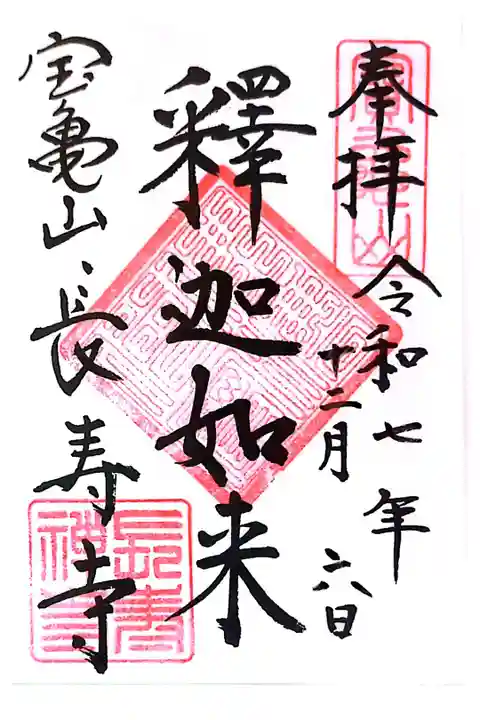 奉拝
令和七年
十二月六日
釋迦如来
宝亀山長寿寺
長寿禅寺